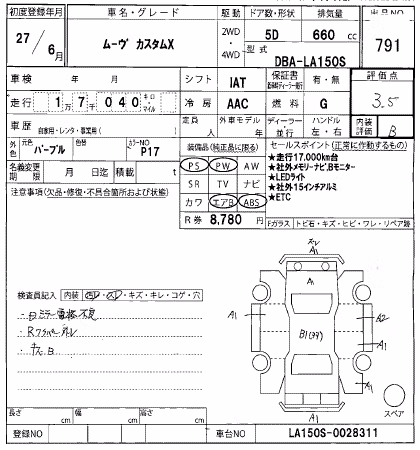 初度登録年月 車名・グレード 駆動 ドア数・形状 排気量 出品NO
27/6月 ムーヴ カスタムX 2WD・4WD 5D 660 cc 791
型式 DBA-LA150S
車検 年 月 シフト IAT 保証書 有・無 評価点 3.5
走行 1万7千040 キロ・マイル 冷房 AAC 燃料 G
車歴 自家用・レンタ・事業用( ) 定員 人 外車モデル 年 ディーラー・並行 ハンドル 左・右 内装評価 B
外色 元色 パープル 色替 カラーNO P17
装備品(純正品に限る) セールスポイント(正常に作動するもの)
名義変更期限 月 日迄 積載 t
PS PW AW
SR TV ナビ
カワ エアB ABS
R券 8,780 円
★走行17,000km台
★社外メモリーナビ,Bモニター
★LEDライト
★社外15インチアルミ
★ETC
注意事項(欠品・修復・不具合箇所および状態)
Fガラス トビ石・キズ・ヒビ・ワレ・リペア跡
検査員記入 内装 ・キズ・キレ・コゲ・穴
不良
A1
A1
A1
A2
B1
A1
A1
A1
スペア
長さ cm 幅 cm 高さ cm
登録NO 車台NO LA150S-0028311